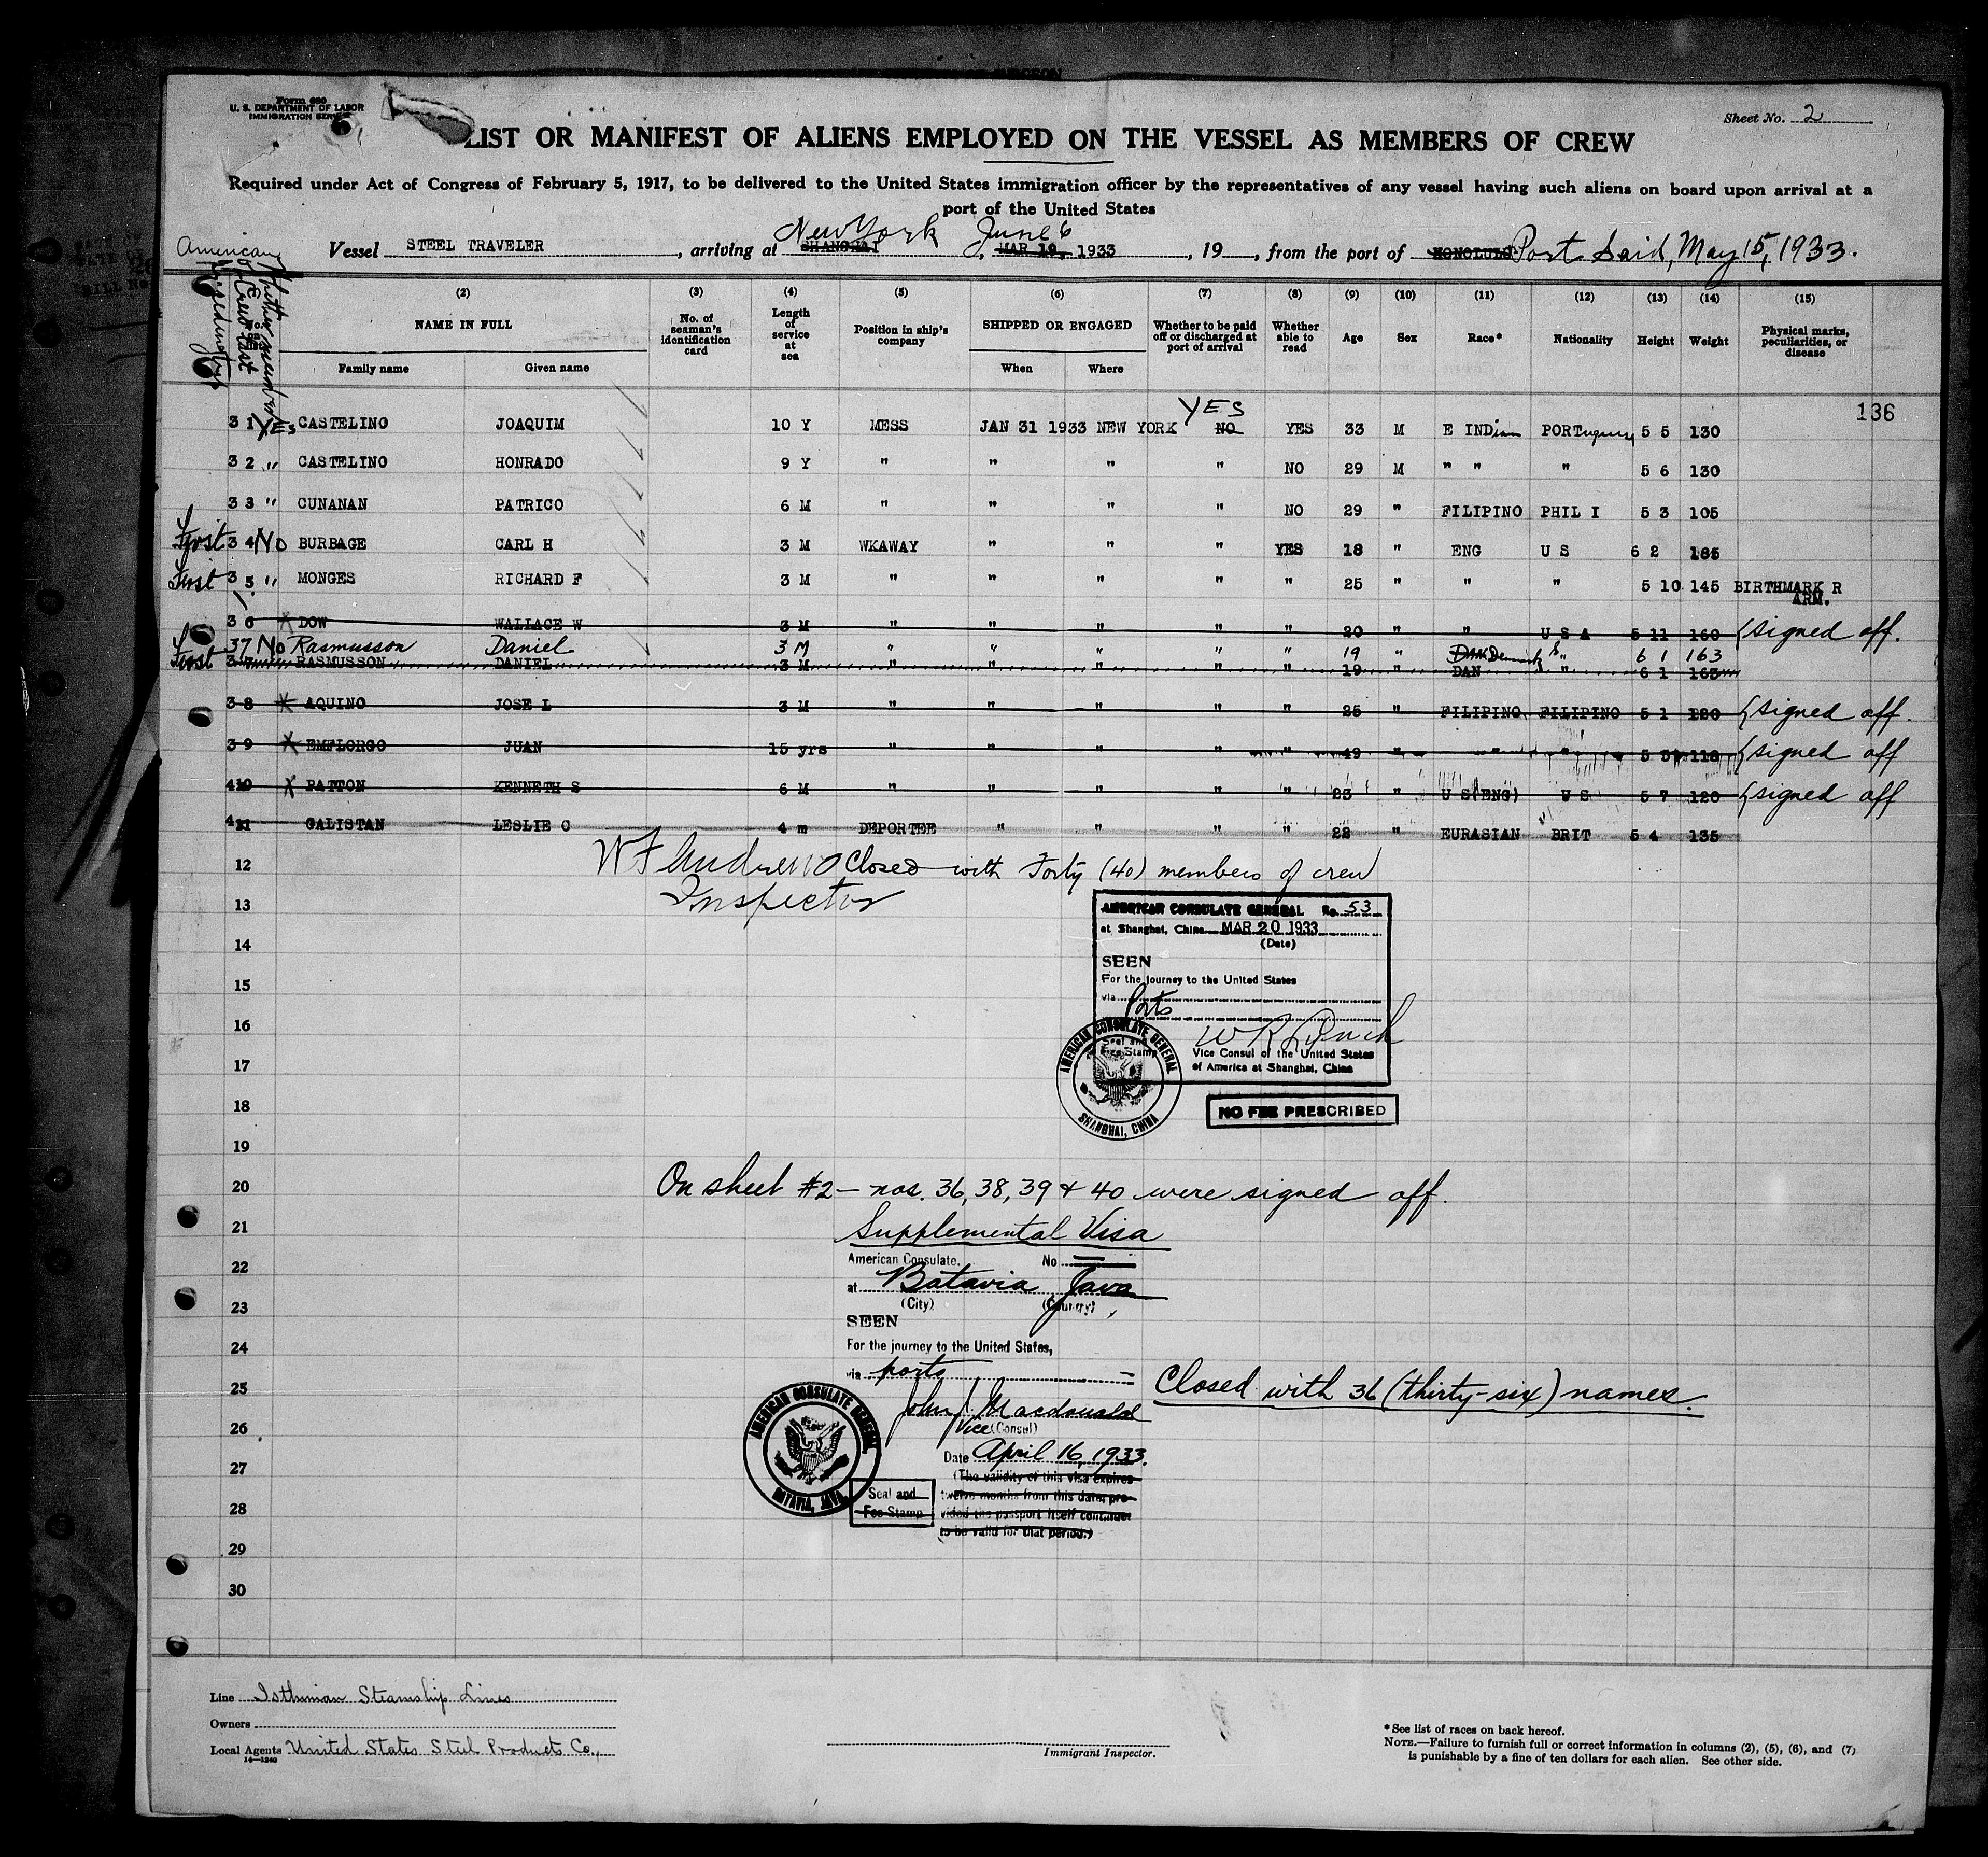 Form 680
U. S. DEPARTMENT OF LABOR
IMMIGRATION SERVICE
Sheet No. 2
LIST OR MANIFEST OF ALIENS EMPLOYED ON THE VESSEL AS MEMBERS OF CREW
Required under Act of Congress of February 5, 1917, to be delivered to the United States immigration officer by the representatives of any vessel having such aliens on board upon arrival at a
port of the United States
New York June 6
American Vessel STEEL TRAVELER, arriving at SHANGHAI, MAR 19, 1933, 19, from the port of HONOLULU Port Said, May 15, 1933.
(2) (3) (4) (5) (6) (7) (8) (9) (10) (11) (12) (13) (14) (15)
NAME IN FULL
Family name Given name
No. of seaman's identification card
Length of service at sea
Position in ship's company
SHIPPED OR ENGAGED
When Where
Whether to be paid off or discharged at port of arrival
Whether able to read
Age
Sex
Race*
Nationality
Height
Weight
Physical marks, peculiarities, or disease
136
YES
31 Yes CASTELINO JOAQUIM 10 Y MESS JAN 31 1933 NEW YORK NO YES 33 M E INDian PORTuguese 5 5 130
32 " CASTELINO HONRADO 9 Y " " " " NO 29 M " " " 5 6 130
33 " CUNANAN PATRICO 6 M " " " " NO 29 " FILIPINO PHIL I 5 3 105
First 34 No BURBAGE CARL H 3 M WKAWAY " " " YES 18 " ENG U S 6 2 185
First 35 " MONGES RICHARD F 3 M " " " " " 25 " " " 5 10 145 BIRTHMARK R
ARM.
36 X DOW WALLACE W 3 M " " " " " 20 " " U S A 5 11 160 (signed off.
37 No Rasmusson Daniel 3 M " " " " " 19 " DAN Denmark " 6 1 163
First 37 RASMUSSON DANIEL 3 M " " " " " 19 " DAN " 6 1 163
38 X AQUINO JOSE L 3 M " " " " " 25 " FILIPINO FILIPINO 5 1 120 (signed off.
39 X EMFLORGO JUAN 15 yrs " " " " " 49 " " " 5 5 118 (signed off
40 X PATTON KENNETH S 6 M " " " " " 23 " U S(ENG) U S 5 7 120 (signed off
41 GALISTAN LESLIE C 4 m DEPORTEE " " " " 22 " EURASIAN BRIT 5 4 135
12 W F Andrews Closed with Forty (40) members of crew
13 Inspector
AMERICAN CONSULATE GENERAL No. 53
at Shanghai, China MAR 20 1933
(Date)
14
SEEN
For the journey to the United States
15
via Ports
16
W R Lynch
Seal and
Fee Stamp
Vice Consul of the United States
of America at Shanghai, China
17
AMERICAN CONSULATE GENERAL
SHANGHAI, CHINA
NO FEE PRESCRIBED
18
19
20 On sheet #2 - nos. 36, 38, 39 & 40 were signed off.
21 Supplemental Visa
American Consulate. No
22
at Batavia Java
(City) (Country)
23
SEEN
24 For the journey to the United States,
via ports
25 Closed with 36 (thirty-six) names.
John J. Macdonald
26 Vice (Consul)
Date April 16, 1933.
27 (The validity of this visa expires
twelve months from this date, pro-
28 vided the passport itself continues
to be valid for that period.)
AMERICAN CONSULATE GENERAL
BATAVIA, JAVA
Seal and
Fee Stamp
29
30
Line Isthmian Steamship Lines
Owners
Local Agents United States Steel Products Co.,
14—1240
Immigrant Inspector.
*See list of races on back hereof.
NOTE.—Failure to furnish full or correct information in columns (2), (5), (6), and (7)
is punishable by a fine of ten dollars for each alien. See other side.